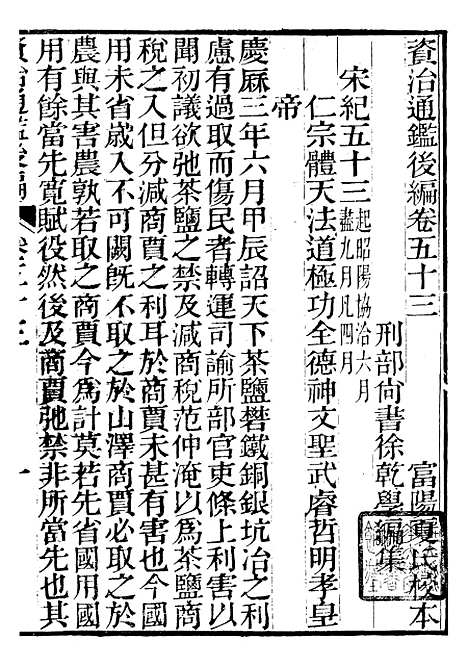 資治通鑑後編卷五十三　富陽夏氏校本
刑部尚書徐乾學編集
宋紀五十三起昭陽協洽六月
盡九月凡四月
仁宗體天法道極功全德神文聖武睿哲明孝皇
帝
慶厤三年六月甲辰詔天下茶鹽礬鐵銅銀坑冶之利
慮有過取而傷民者轉運司諭所部官吏條上利害以
聞初議欲弛茶鹽之禁及減商稅范仲淹以爲茶鹽商
稅之入但分減商賈之利耳於商賈未甚有害也今國
用未省歲入不可闕旣不取之於山澤商賈必取之於
農與其害農孰若取之商賈今爲計莫若先省國用國
用有餘當先寬賦役然後及商賈弛禁非所當先也其
資治通鑑後編　卷五十三　一